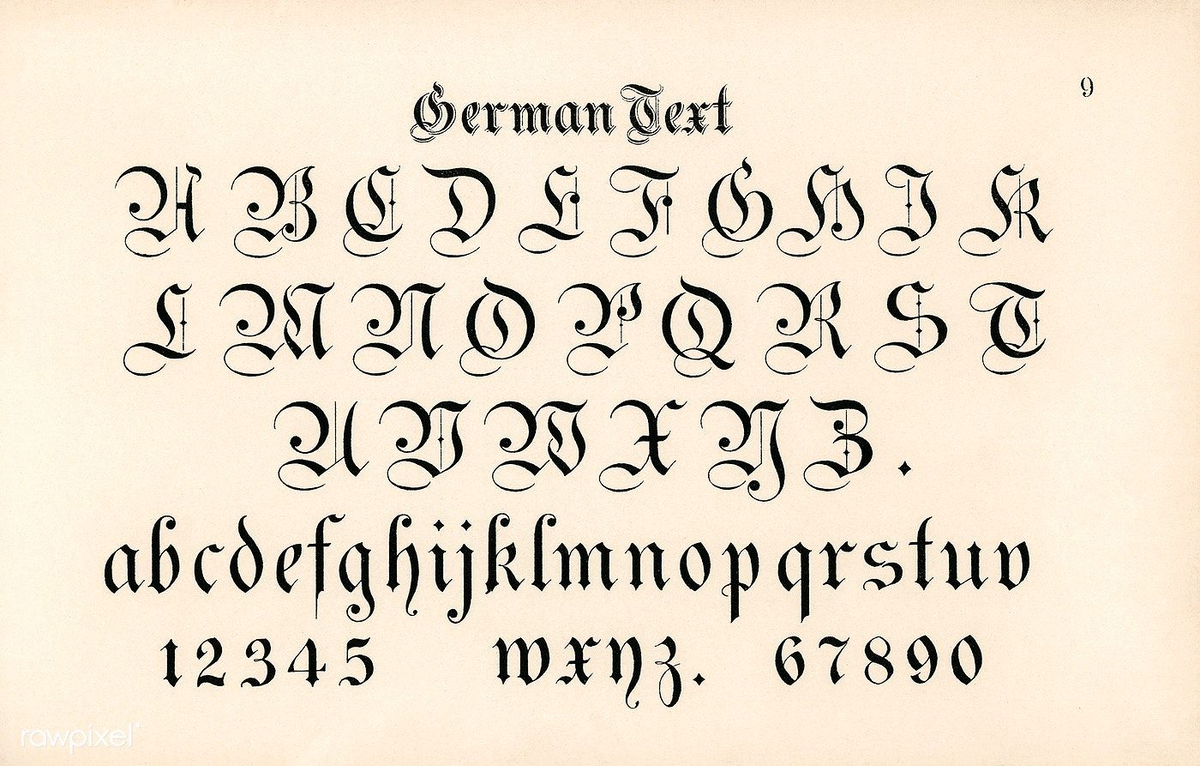 9
German Text
A B C D E F G H I K
L M N O P Q R S T
U V W X Y Z .
a b c d e f g h i j k l m n o p q r s t u v
1 2 3 4 5 w x y z . 6 7 8 9 0
rawpixel